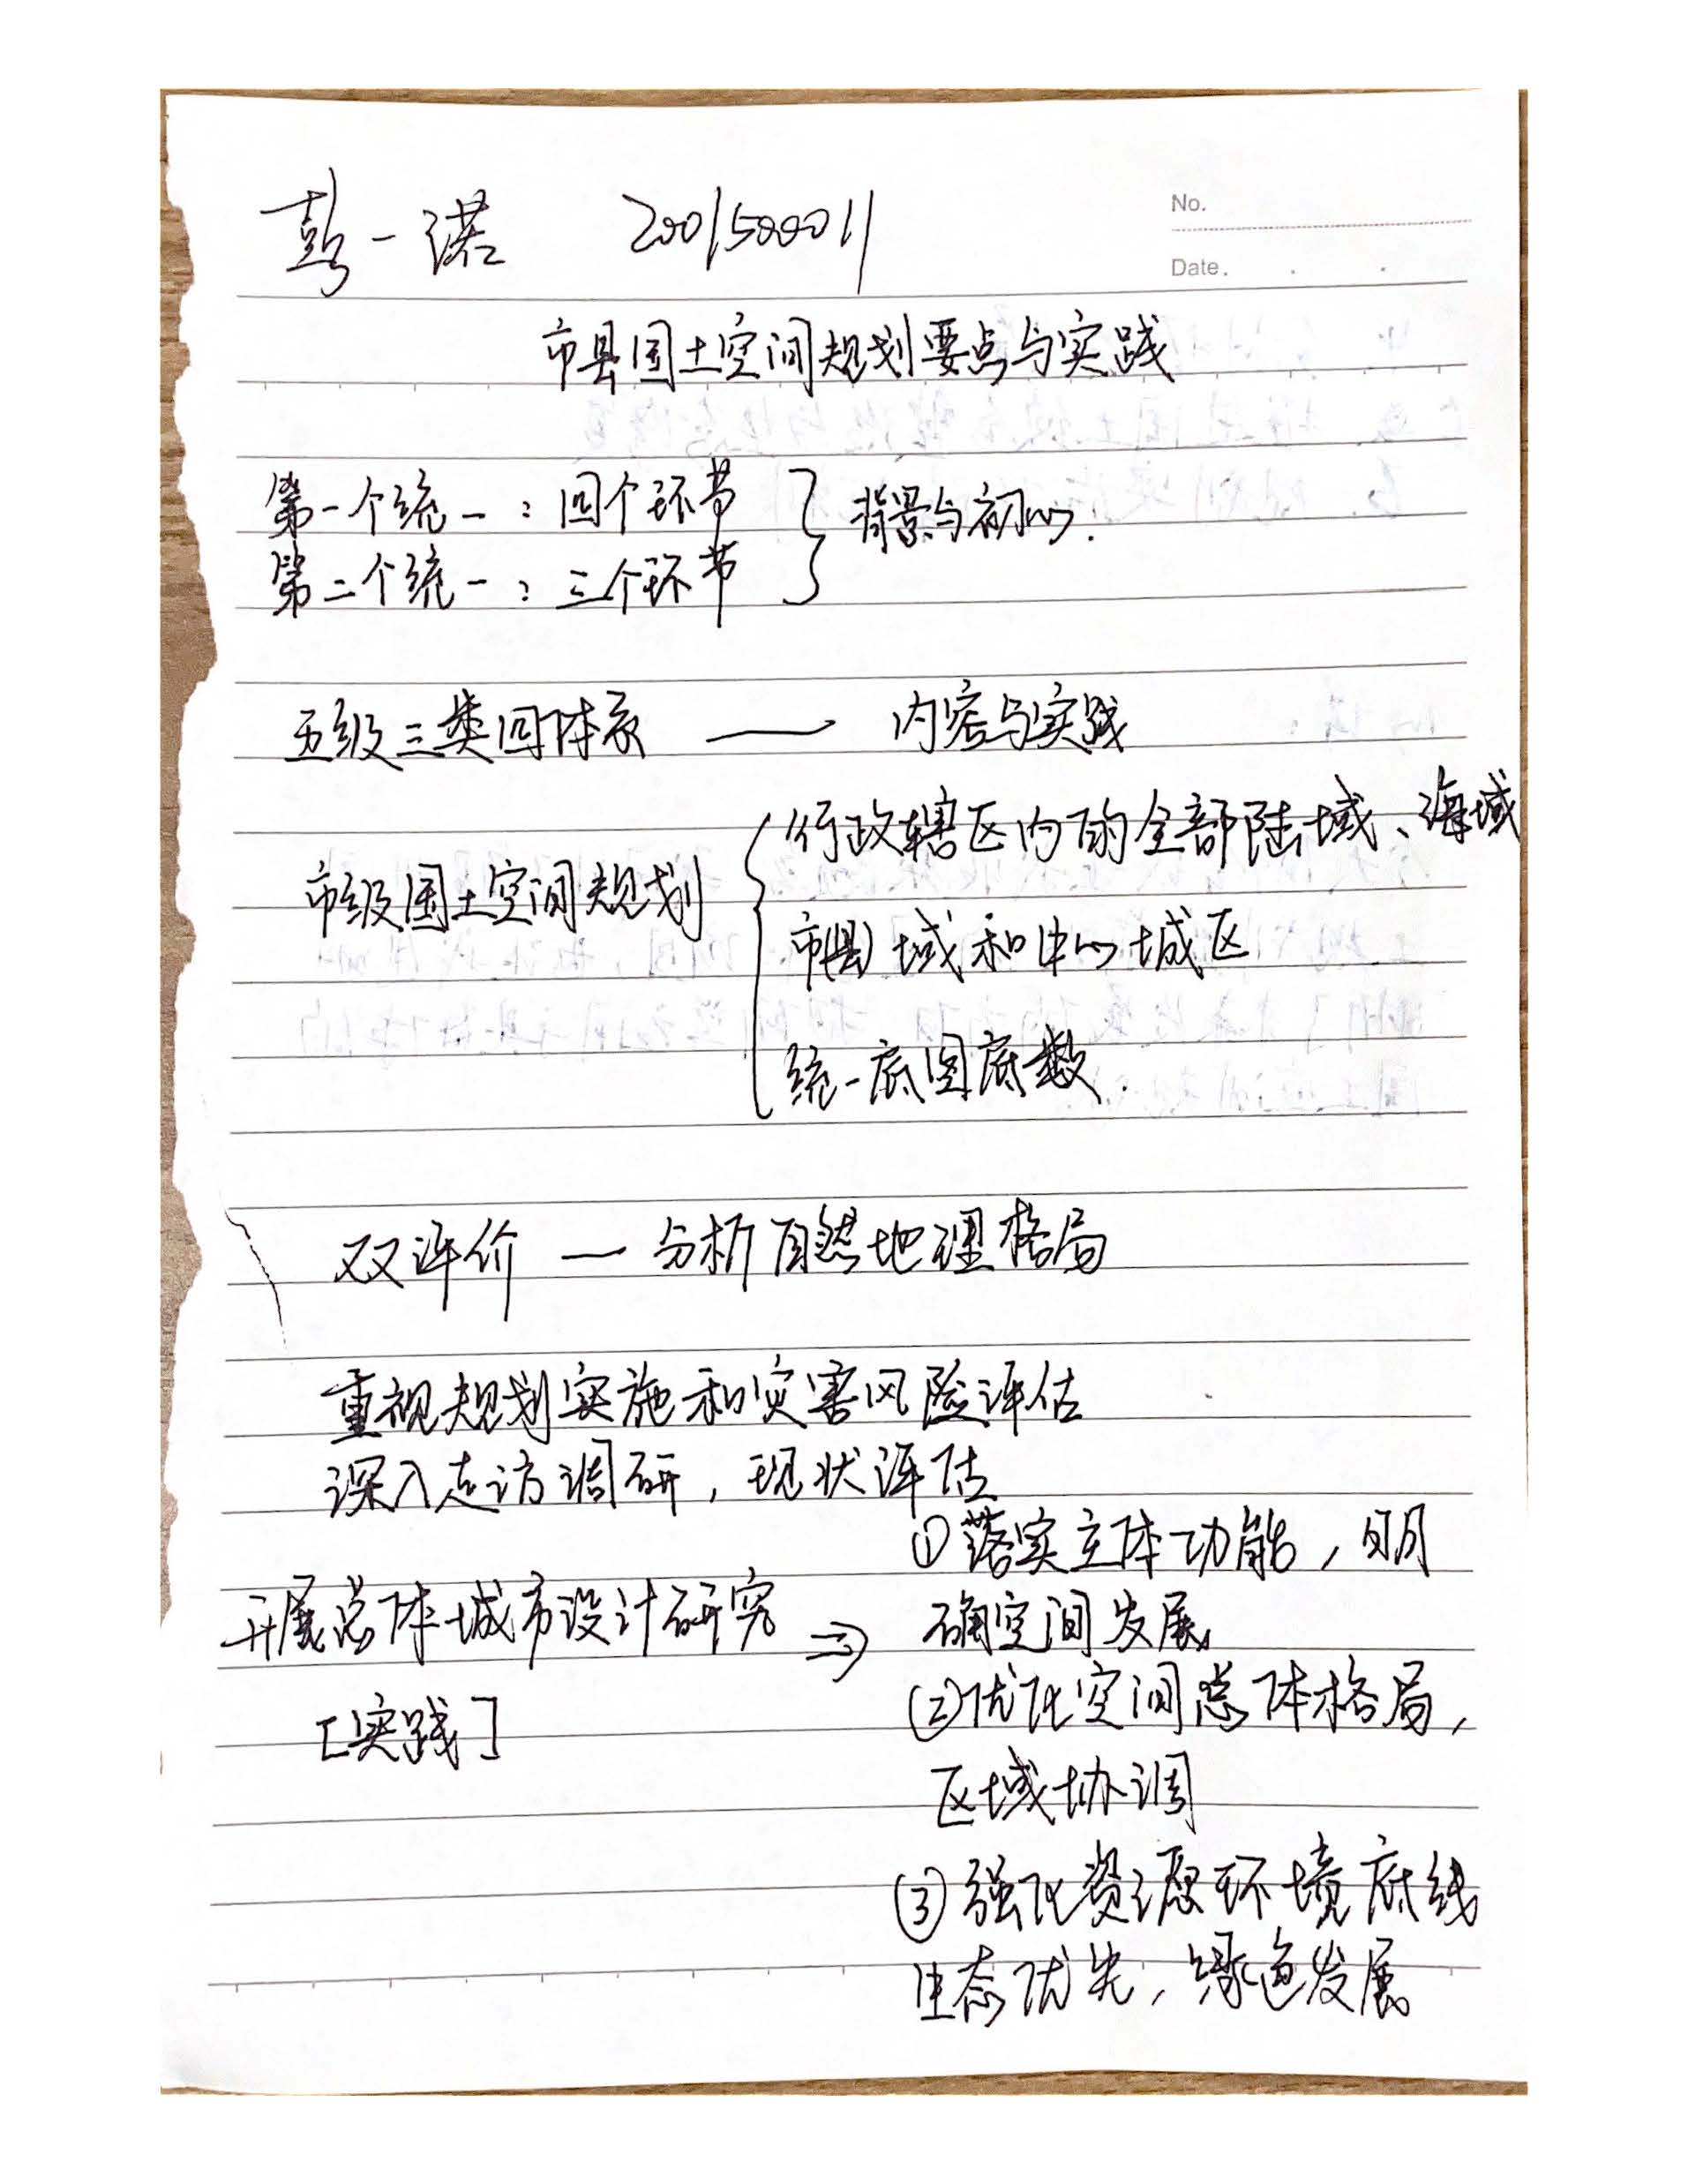 彭一诺 2001500011
No.
Date.
市县国土空间规划要点与实践
第一个统一：四个环节
第二个统一：三个环节
背景与初心.
五级三类四体系 —— 内容与实践
市级国土空间规划
行政辖区内的全部陆域、海域
市(县)域和中心城区
统一底图底数.
双评价 — 分析自然地理格局
重视规划实施和灾害风险评估
深入走访调研，现状评估
开展总体城市设计研究 ⇒
[实践]
①落实主体功能，明
确空间发展
②优化空间总体格局，
区域协调
③强化资源环境底线
生态优先，绿色发展